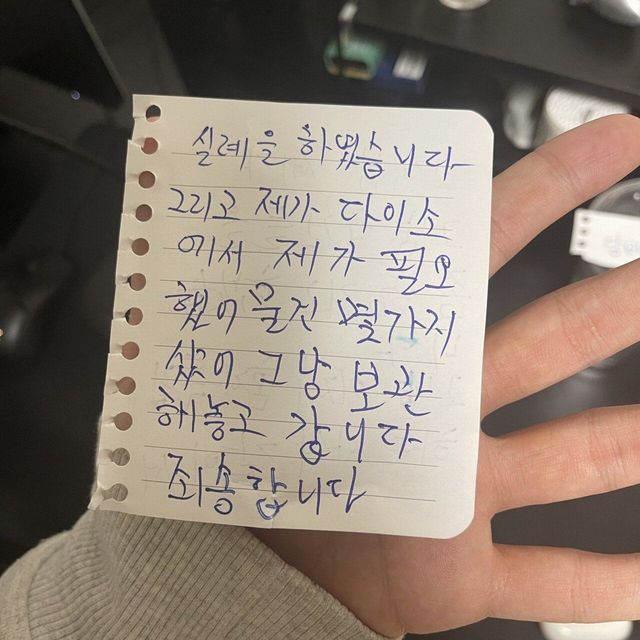 실례을 하였습니다
그리고 제가 다이소
에서 제가 필요
했어 물건 몇가지
샀어 그냥 보관
해놓고 갑니다
죄송합니다